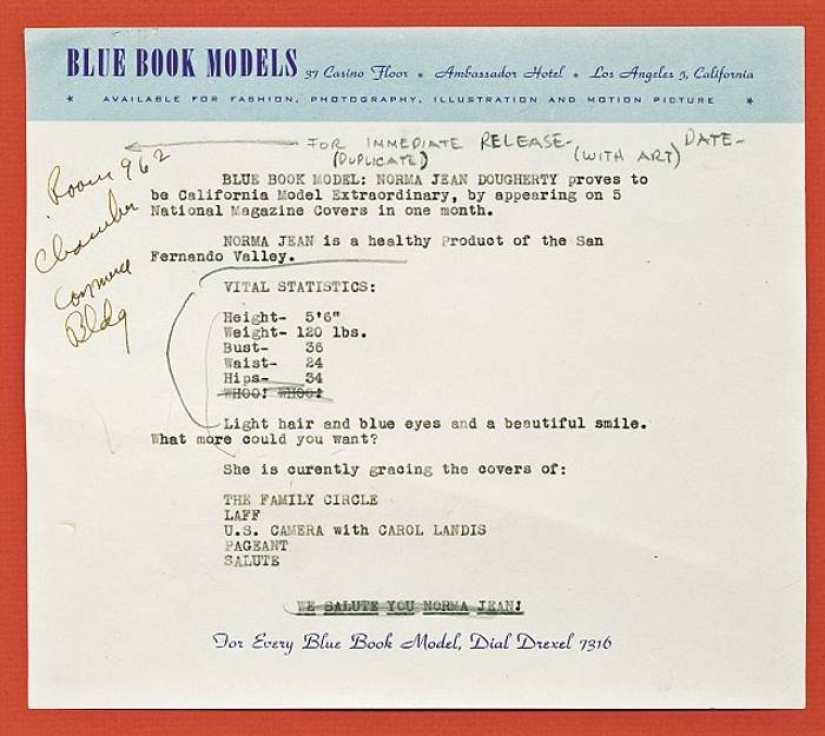 BLUE BOOK MODELS 37 Casino Floor • Ambassador Hotel • Los Angeles 5, California
* AVAILABLE FOR FASHION, PHOTOGRAPHY, ILLUSTRATION AND MOTION PICTURE *
FOR IMMEDIATE RELEASE- (WITH ART) DATE-
(DUPLICATE)
Room 962
Chamber
Commerce
Bldg
BLUE BOOK MODEL: NORMA JEAN DOUGHERTY proves to
be California Model Extraordinary, by appearing on 5
National Magazine Covers in one month.
NORMA JEAN is a healthy Product of the San
Fernando Valley.
VITAL STATISTICS:
Height- 5'6"
Weight- 120 lbs.
Bust- 36
Waist- 24
Hips- 34
WHOO! WHOO!
Light hair and blue eyes and a beautiful smile.
What more could you want?
She is curently gracing the covers of:
THE FAMILY CIRCLE
LAFF
U.S. CAMERA with CAROL LANDIS
PAGEANT
SALUTE
WE SALUTE YOU NORMA JEAN!
For Every Blue Book Model, Dial Drexel 7316